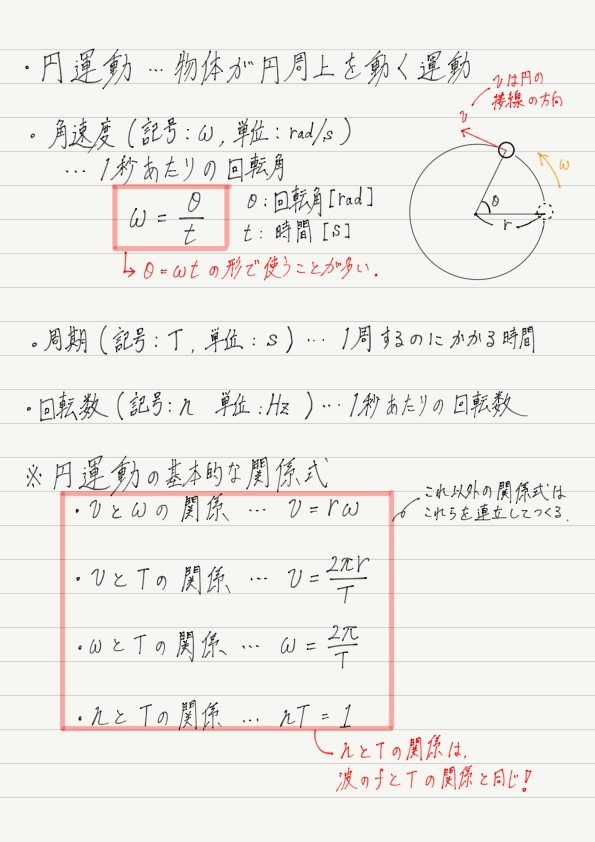 ・円運動 … 物体が円周上を動く運動
vは円の
接線の方向
v
・角速度 (記号:ω, 単位:rad/s)
… 1秒あたりの回転角
ω
ω = θ/t
θ:回転角[rad]
t:時間 [s]
θ
r
↳ θ=ωtの形で使うことが多い.
・周期 (記号:T, 単位:s) … 1周するのにかかる時間
・回転数 (記号:n 単位:Hz ) … 1秒あたりの回転数
※ 円運動の基本的な関係式
・vとωの関係 … v=rω
これ以外の関係式は
これらを連立してつくる.
・vとTの関係 … v=2πr/T
・ωとTの関係 … ω=2π/T
・nとTの関係 … nT=1
nとTの関係は,
波のfとTの関係と同じ!